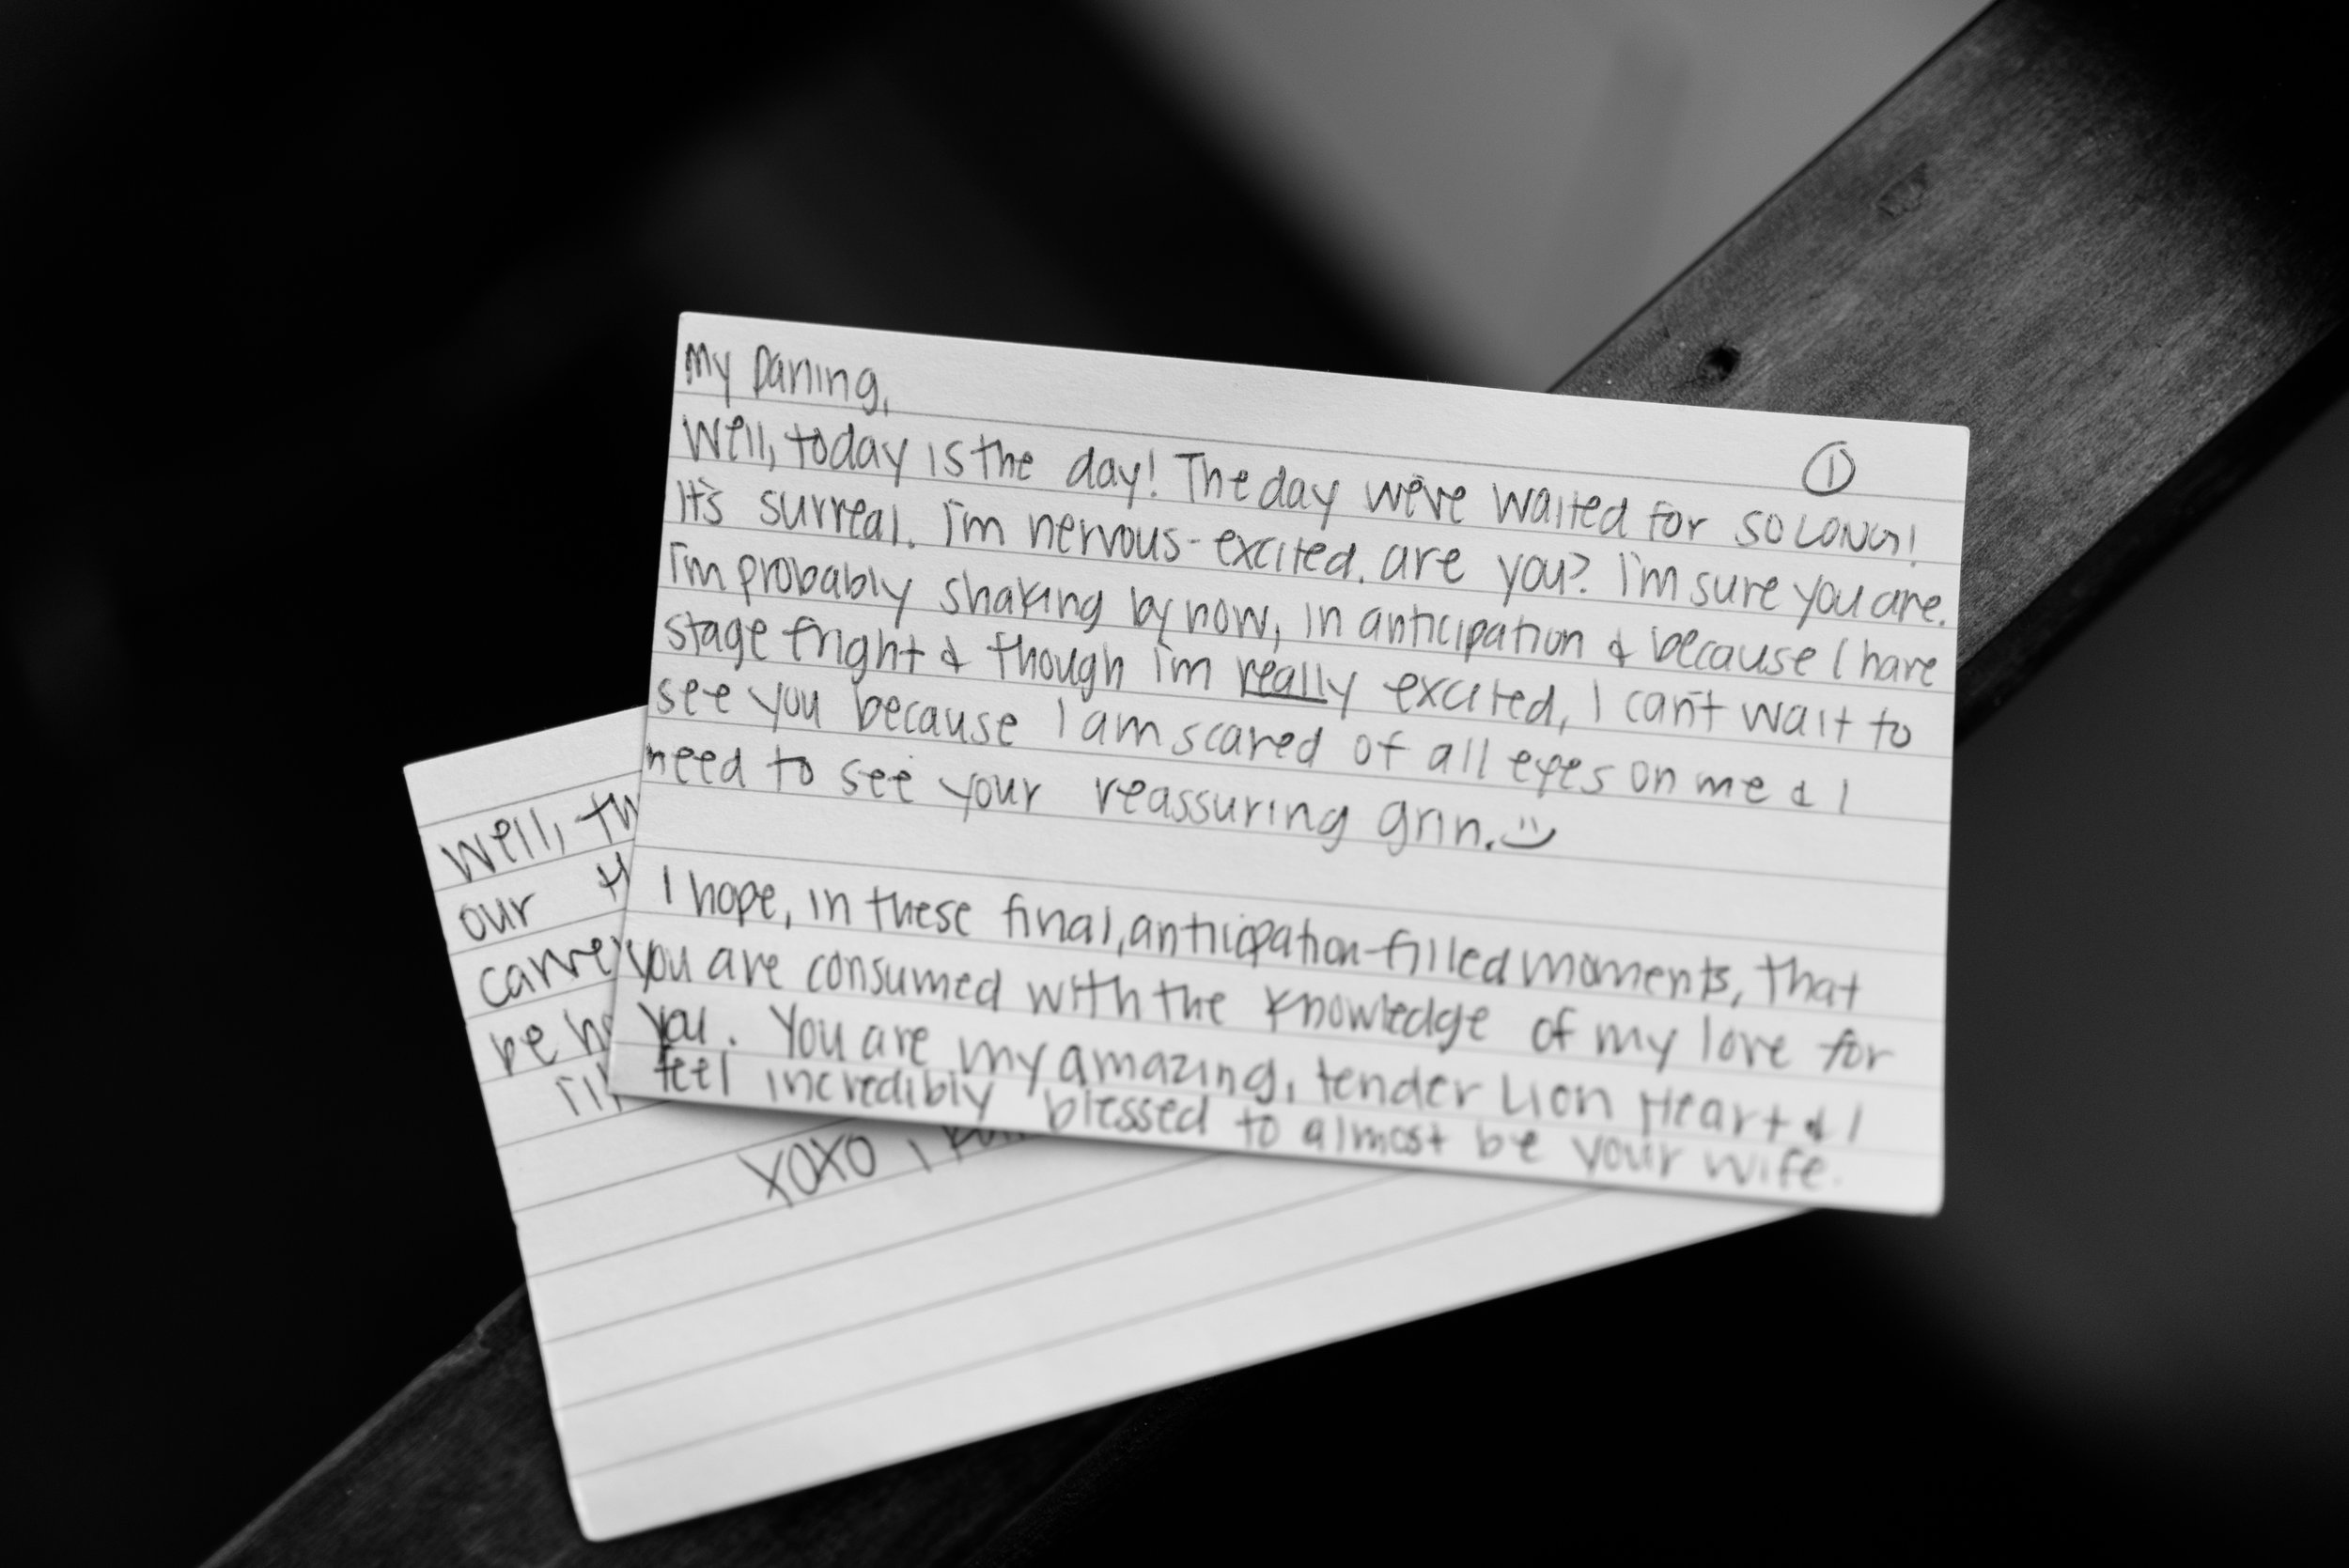 My Darling,
①
Well, today is the day! The day we've waited for SO LONG!
It's surreal. I'm nervous-excited. are you? I'm sure you are.
I'm probably shaking by now, in anticipation & because I have
stage fright & though I'm really excited, I can't wait to
see you because I am scared of all eyes on me & I
need to see your reassuring grin. :)
I hope, in these final, anticipation-filled moments, that
you are consumed with the knowledge of my love for
you. You are my amazing, tender Lion Heart & I
feel incredibly blessed to almost be your wife.
Well,
our
be
I'll
XOXO